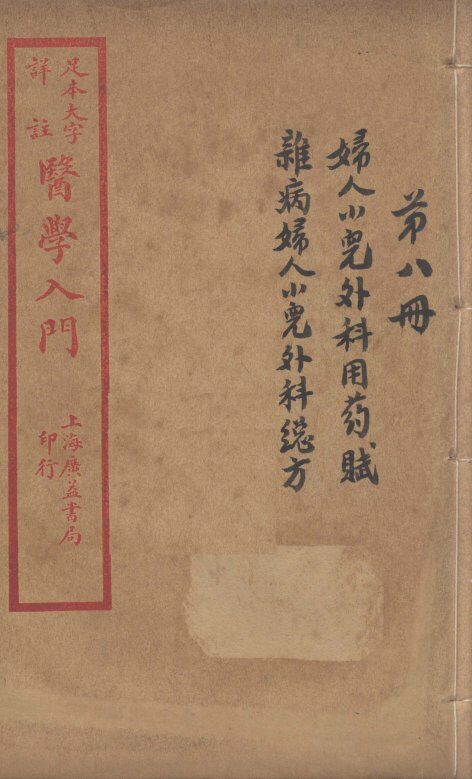 第八冊
婦人小兒外科用药賦
雜病婦人小兒外科總方
足本大字
詳註
醫學入門
上海廣益書局
印行